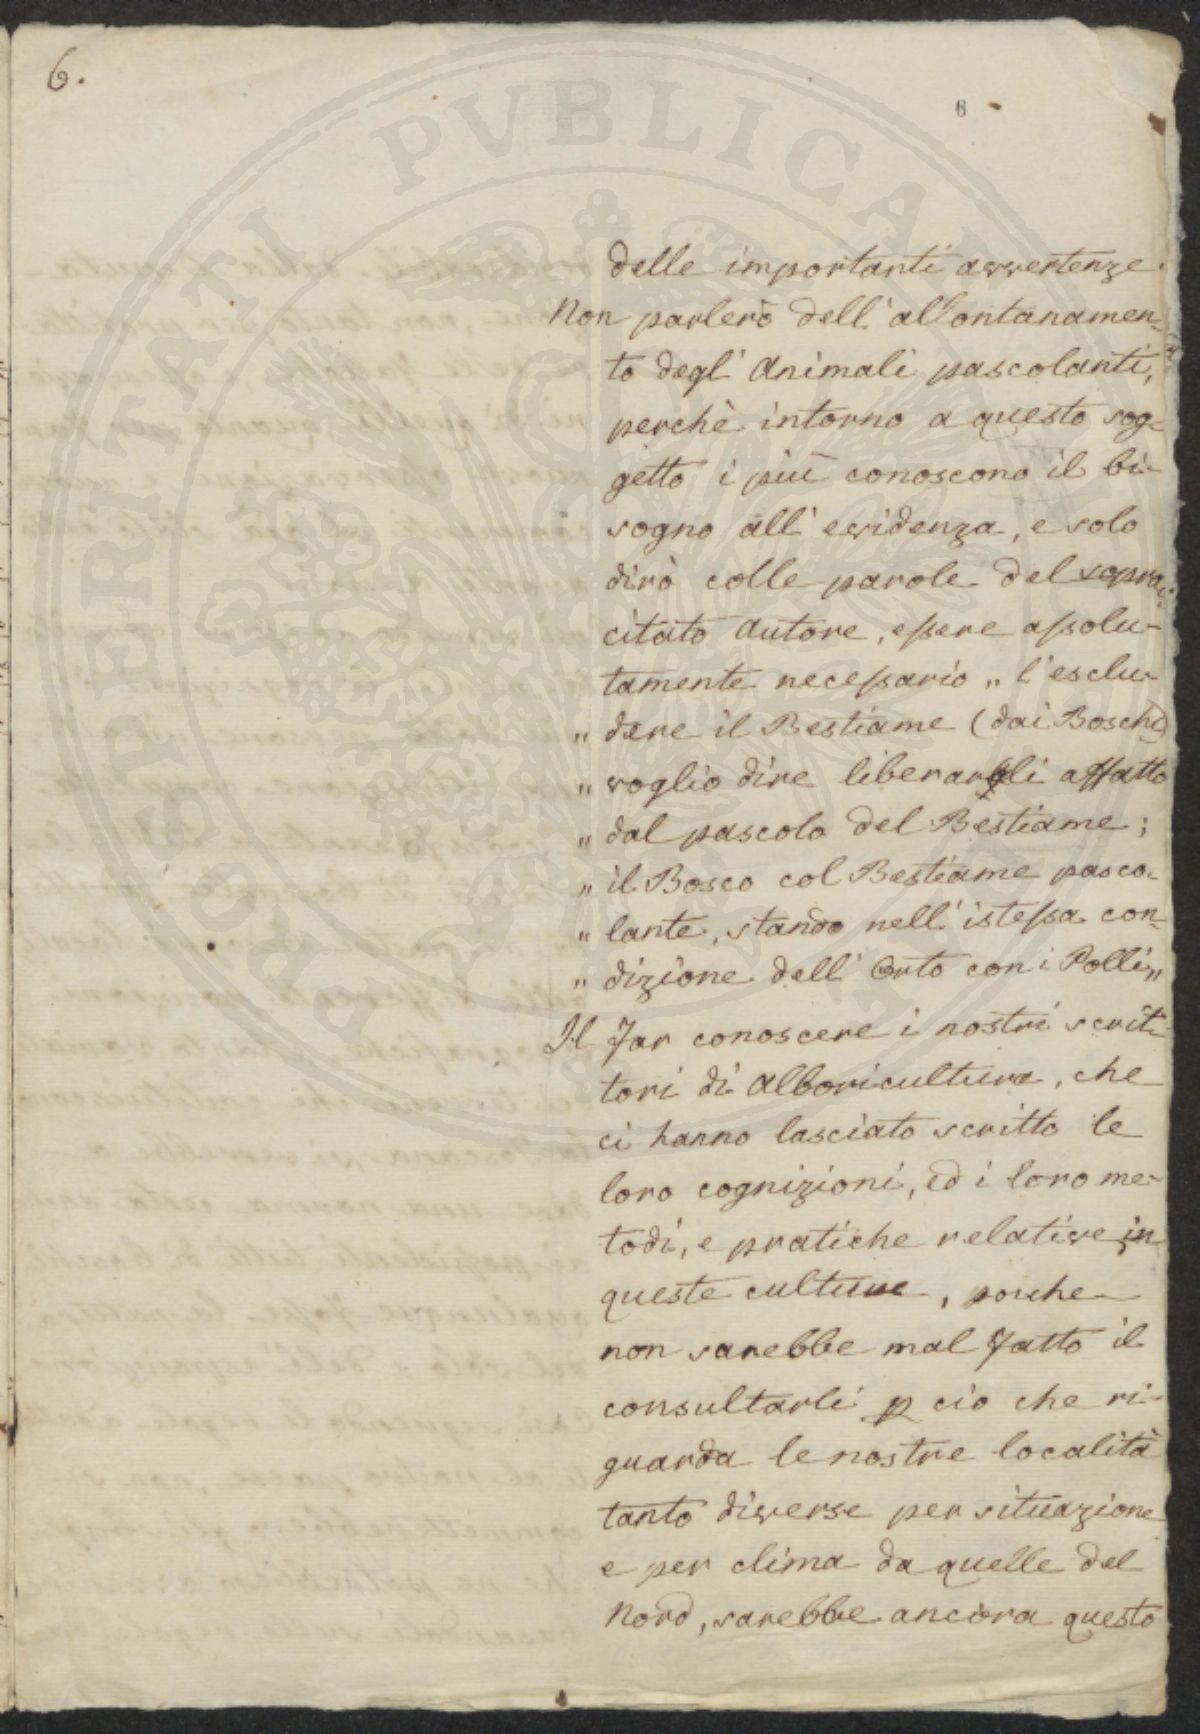 6.
6
PROSPERITATI PVBLICAE
delle importanti avvertenze.
Non parlerò dell'allontanamen-
to degl'Animali pascolanti,
perchè intorno a questo sog-
getto i più conoscono il bi-
sogno all'evidenza, e solo
dirò colle parole del sopra-
citato Autore, essere assolu-
tamente necessario „ l'esclu-
„ dere il Bestiame (dai Boschi)
„ voglio dire liberargli affatto
„ dal pascolo del Bestiame;
„ il Bosco col Bestiame pasco-
„ lante, stando nell'istessa con-
„ dizione dell'Orto con i Polli „
Il far conoscere i nostri scrit-
tori di Alboricultura, che
ci hanno lasciato scritto le
loro cognizioni, ed i loro me-
todi, e pratiche relative in
queste culture, poichè
non sarebbe mal fatto il
consultarli p ciò che ri-
guarda le nostre località
tanto diverse per situazione
e per clima da quelle del
Nord, sarebbe ancora questo